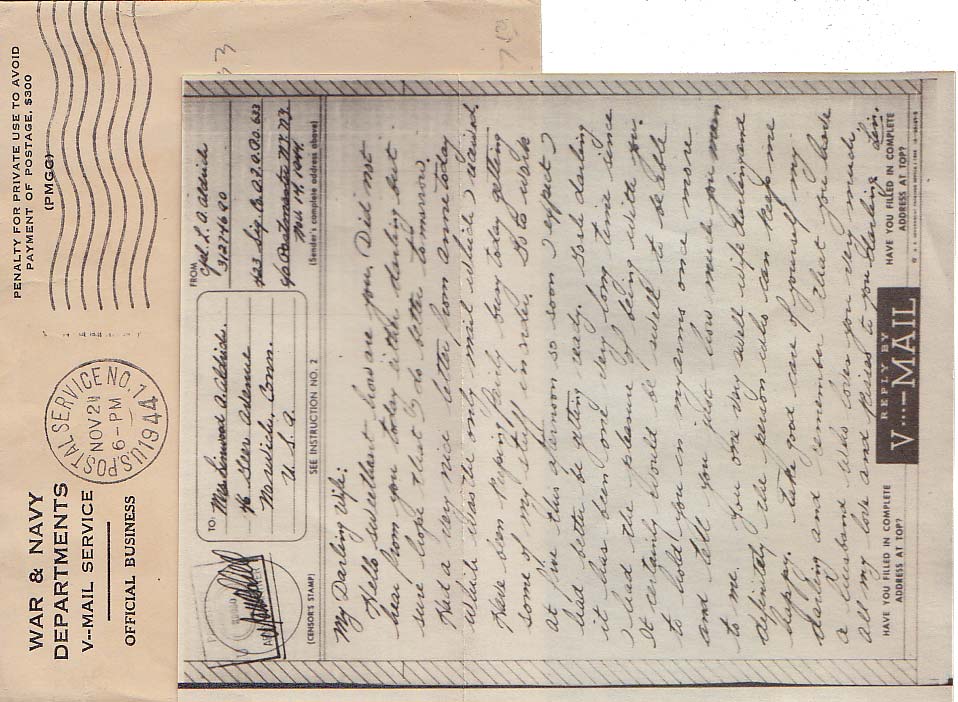 PENALTY FOR PRIVATE USE TO AVOID
PAYMENT OF POSTAGE, $300
(PMGC)
U.S. POSTAL SERVICE NO. 1
NOV 24
6-PM
1944
WAR & NAVY
DEPARTMENTS
V--MAIL SERVICE
OFFICIAL BUSINESS
(CENSOR'S STAMP)
TO:
Mrs Linwood A. Aldrich.
46 Geer Avenue
Norwich, Conn.
U. S. A.
SEE INSTRUCTION NO. 2
FROM
Cpl. L. A. Aldrich
31214600
423 Sig. Co. A.P.O. 633
c/o Postmaster N.Y. N.Y.
Nov. 14, 1944.
(Sender's complete address above)
My Darling Wife:
Hello sweetheart how are you. Did not
hear from you today either darling but
sure hope that to do better tomorrow.
Had a very nice letter from Anne today
which was the only mail which I received.
Have been keeping fairly busy today getting
some of my stuff in order. Go to work
at five this afternoon so soon I expect I
had better be getting ready. Gosh darling
it has been one very long time since
I had the pleasure of being with you.
It certainly would be swell to be able
to hold you in my arms once more
and tell you just how much you mean
to me. You one very swell wife darling and
definitely the person who can keep me
happy. Take good care of yourself my
darling and remember that you have
a husband who loves you very much.
All my love and kisses to you darling Lin.
HAVE YOU FILLED IN COMPLETE
ADDRESS AT TOP?
REPLY BY
V···—MAIL
HAVE YOU FILLED IN COMPLETE
ADDRESS AT TOP?